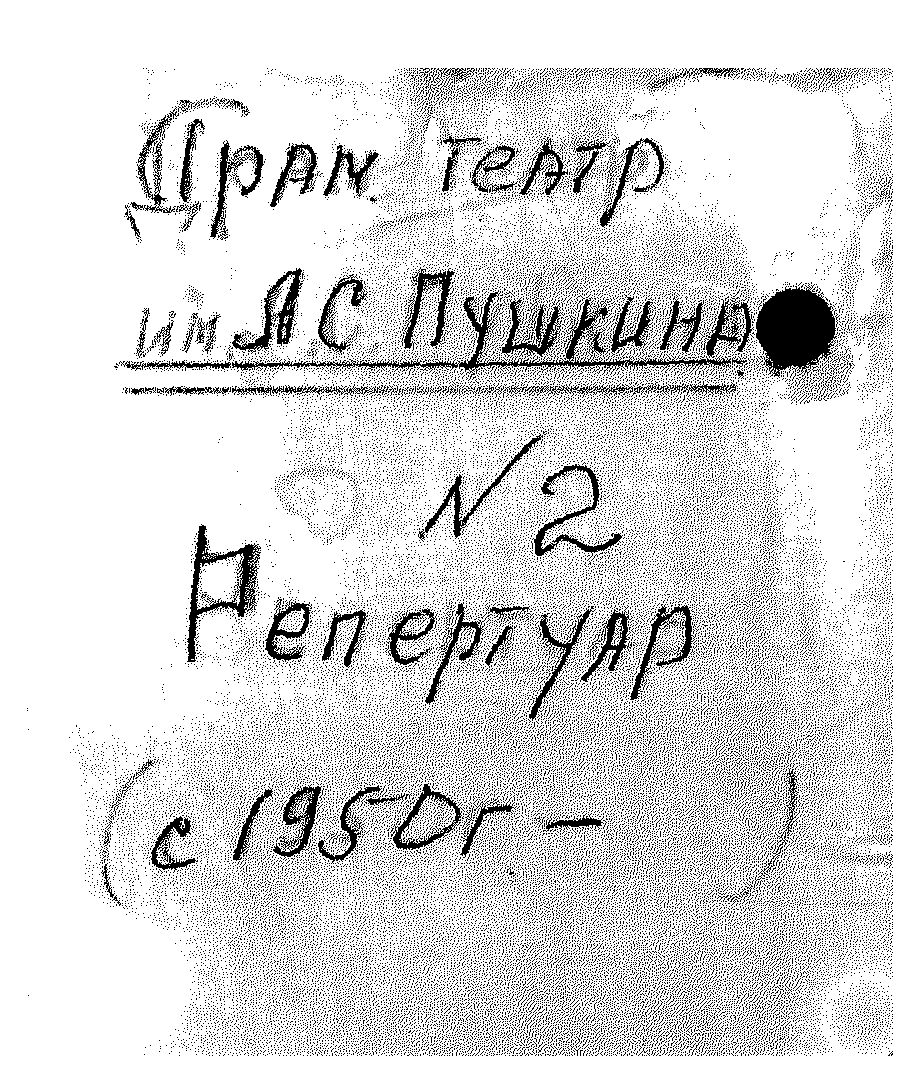 Драм. театр
им. АС Пушкина
N 2
Репертуар
(с 1950г. — )